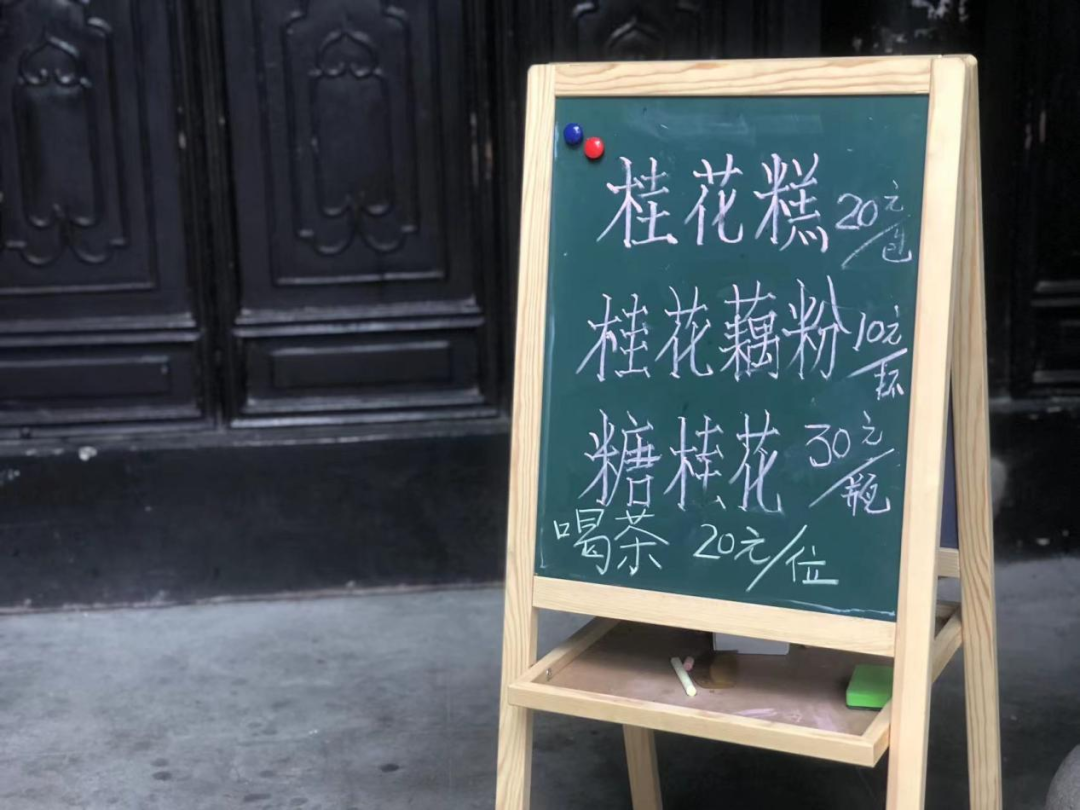 桂花糕 20元/包
桂花藕粉 10元/杯
糖桂花 30元/瓶
喝茶 20元/位